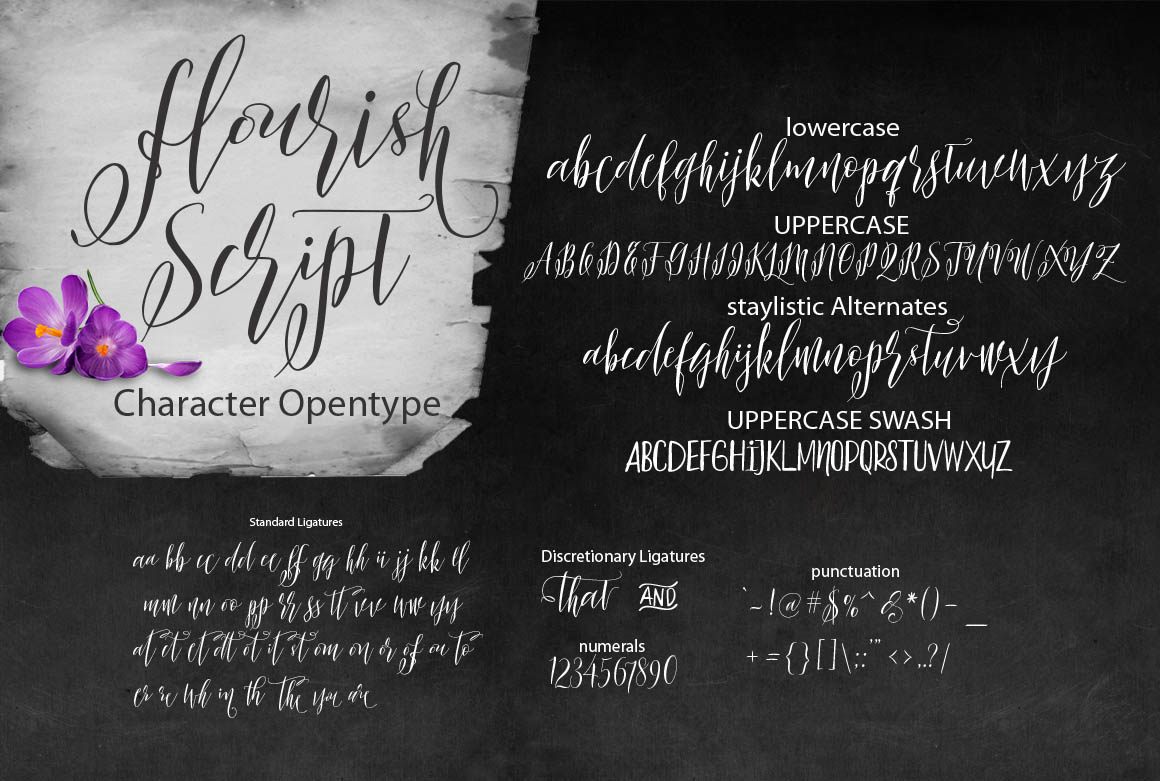 flourish
Script
Character Opentype
lowercase
abcdefghijklmnopqrstuvwxyz
UPPERCASE
ABCDEFGHIJKLMNOPQRSTUVWXYZ
staylistic Alternates
abcdefghijklmnoprstuvwxy
UPPERCASE SWASH
ABCDEFGHIJKLMNOPQRSTUVWXYZ
Standard Ligatures
aa bb cc dd ee ff gg hh ii jj kk ll
mm nn oo pp rr ss tt vv ww yy
at et dt ot it st om on or of ou to
er re wh in th the you are
Discretionary Ligatures
that AND
numerals
1234567890
punctuation
`~!@#$%^&*()-_
+={}[]\;:'"<>,.?/